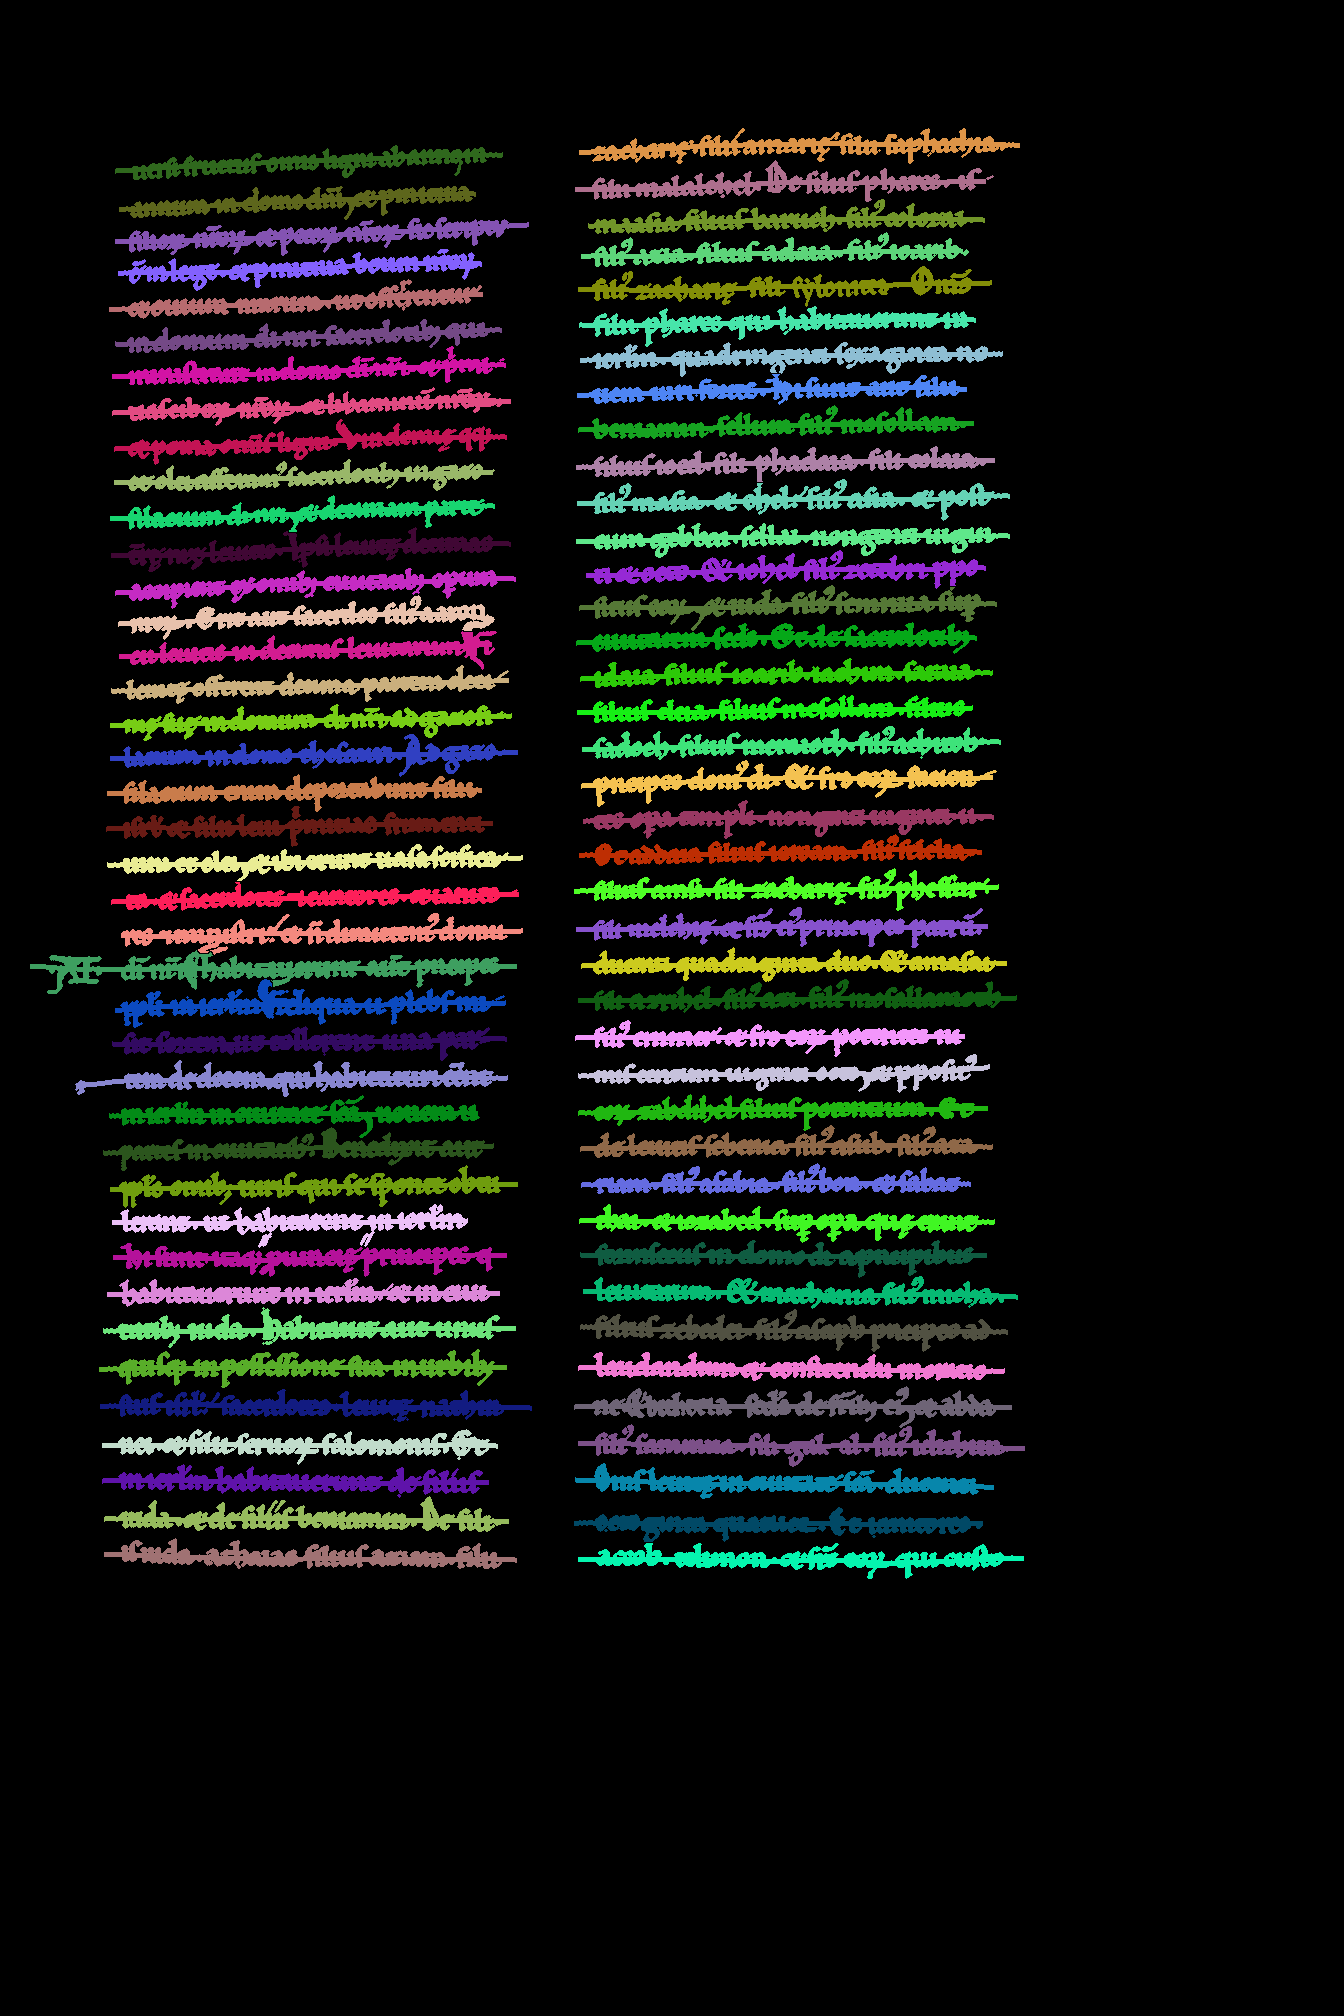 uersi fructus omnis ligni ab anno in
annum in domo dñi, et primitiua
filioꝝ nr̃oꝝ et pecoꝝ nr̃oꝝ sic scriptũ
ẽ in lege et primitiua boum nr̃oꝝ
et ouium nrarum ut offerrentur
in domum di nri sacerdotib; qui
ministrant in domo di nri et primi
tias ciboꝝ nr̃oꝝ et libaminũ nr̃oꝝ
et poma omis ligni Vindemię qq;
et olei afferem² sacerdotib; in gazo
filatium di nri, et decimam parte
tre nre leuitis Ipsi leuitę decimas
accipient ex omib; ciuitatib; opum
nroꝝ. Erit aut sacerdos fili² aaron
cu leuitis in decimis leuitarum Et
leuitę offerent decima partem deci
mę suę in domum di nri ad gazofi
latium in domo thesauri Ad gazo
filatium enim deportabunt filii
isrl et filii leui primitias frumenti
uini et olei, et ibi erunt uasa scifica
ta et sacerdotes et cantores et ianito
res et ministri. et ñ dimittem² domũ
XI di nri Habitauerunt aut principes
ppli in ierlm Reliqua u plebs mi
sit sortem ut tollerent una parte
em de decem qui habitaturi eẽnt
in ierlm in ciuitate scã, nouem u
partes in ciuitatib². Benedixit aut
ppls omib; uiris qui se sponte obtu
lerunt ut habitarent in ierlm
hi sunt itaq; puincię principes q
habitauerunt in ierlm et in ciui
tatib; iuda. Habitauit aut unus
quisq; in possessione sua in urbib;
suis isrl sacerdotes leuitę nathin
nei et filii seruoꝝ salomonis Et
in ierlm habitauerunt de filiis
iuda et de filiis beniamin. De filiis
iuda. athaias filius aziam filii
zacharię. filii amarię filii saphathia
filii malalehel. De filiis phares. a
maasia filius baruch. fili² colozai
fili² azia filius adaia fili² ioarib
fili² zacharię fili sylonitis Oms
filii phares qui habitauerunt in
ierlm. quadringenti sexaginta oc
to uiri fortes. Hi sunt aut filii
beniamin. sellum fili² mosollam
filius ioed fili phadaia fili colaia
fili² masia et ethel fili² asia et post
eum gebbai sellai nongenti uigin
ti et octo. Et iohel fili² zechri ppo
situs eoꝝ, et iuda fili² sennua sup
ciuitatem scds. Et de sacerdotib;
idaia filius ioarib iachin saraia
filius elcia filius mesollam filius
sadoch filius meraioth fili² achitob
princeps dom² di Et frs eoꝝ facien
tes opa templi octingenti uiginti ii
Et addaia filius ieroam. fili² felelia
filius amsi. fili zacharię fili² phessur
fili melchię et frs ei² principes patrũ
ducenti quadraginta duo. Et amasai
fili azrihel fili² azi fili² mosollamoth
fili² emmer. et frs eoꝝ potentes ni
mis centum uiginti octo, et pposit²
eoꝝ zabdihel filius potentium. Et
de leuitis sebenia fili² asub. fili² aza
riam fili² asabia fili² boni et sabat
thai et iozabed sup opa quę erant
forinsecus in domo di a principibus
leuitarum Et mathania fili² micha.
filius zebedei fili² asaph princeps ad
laudandum et confitendu in oratio
ne Et becbecia scds de frib; ei², et abda
fili² samma fili galal fili² idithun
Oms leuitę in ciuitate scã ducenti
octoginta quattuor. Et ianitores.
accob. telmon et frs eoꝝ qui custo